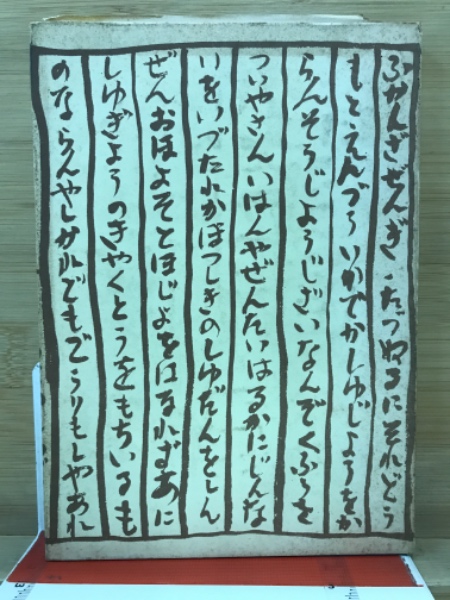 ふかんざぜんぎ たつぬるにそれどう
もとえんづういかでかしゆじようをか
らんそうじようじざいなんぞくふうを
ついやさんいはんやぜんたいはるかにじんな
いをいづたれかほつしきのしゆだんをしん
ぜんおほよそとほじよをはなれずあに
しゆぎようのきやくとうをもちいるも
のならんやしかれどもごうりもしやあれ